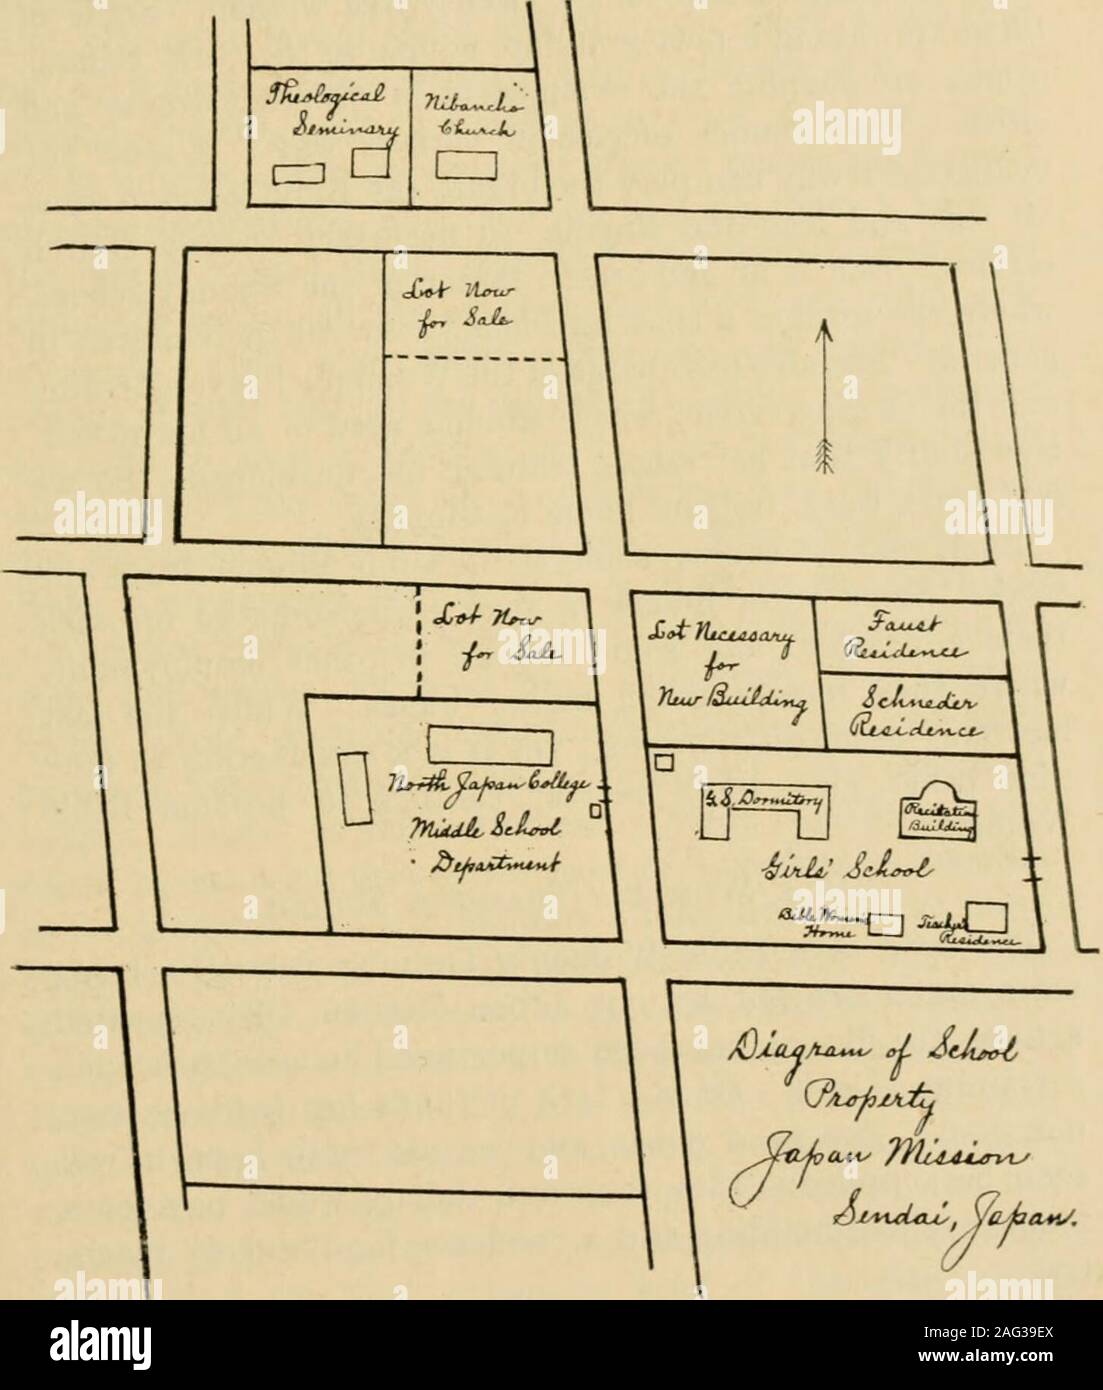 Theological
Seminary
Nibancho
Church
Lot Now
for Sale
Lot Now
for Sale
Lot Necessary
for
New Building
Faust
Residence
Schneder
Residence
North Japan College
Middle School
Department
G. S. Dormitory
Recitation
Building
Girls' School
Bible Woman's
Home
Teacher's
Residence
Diagram of School
Property
Japan Mission
Sendai, Japan.
alamy
Image ID: 2AG39EX
www.alamy.com